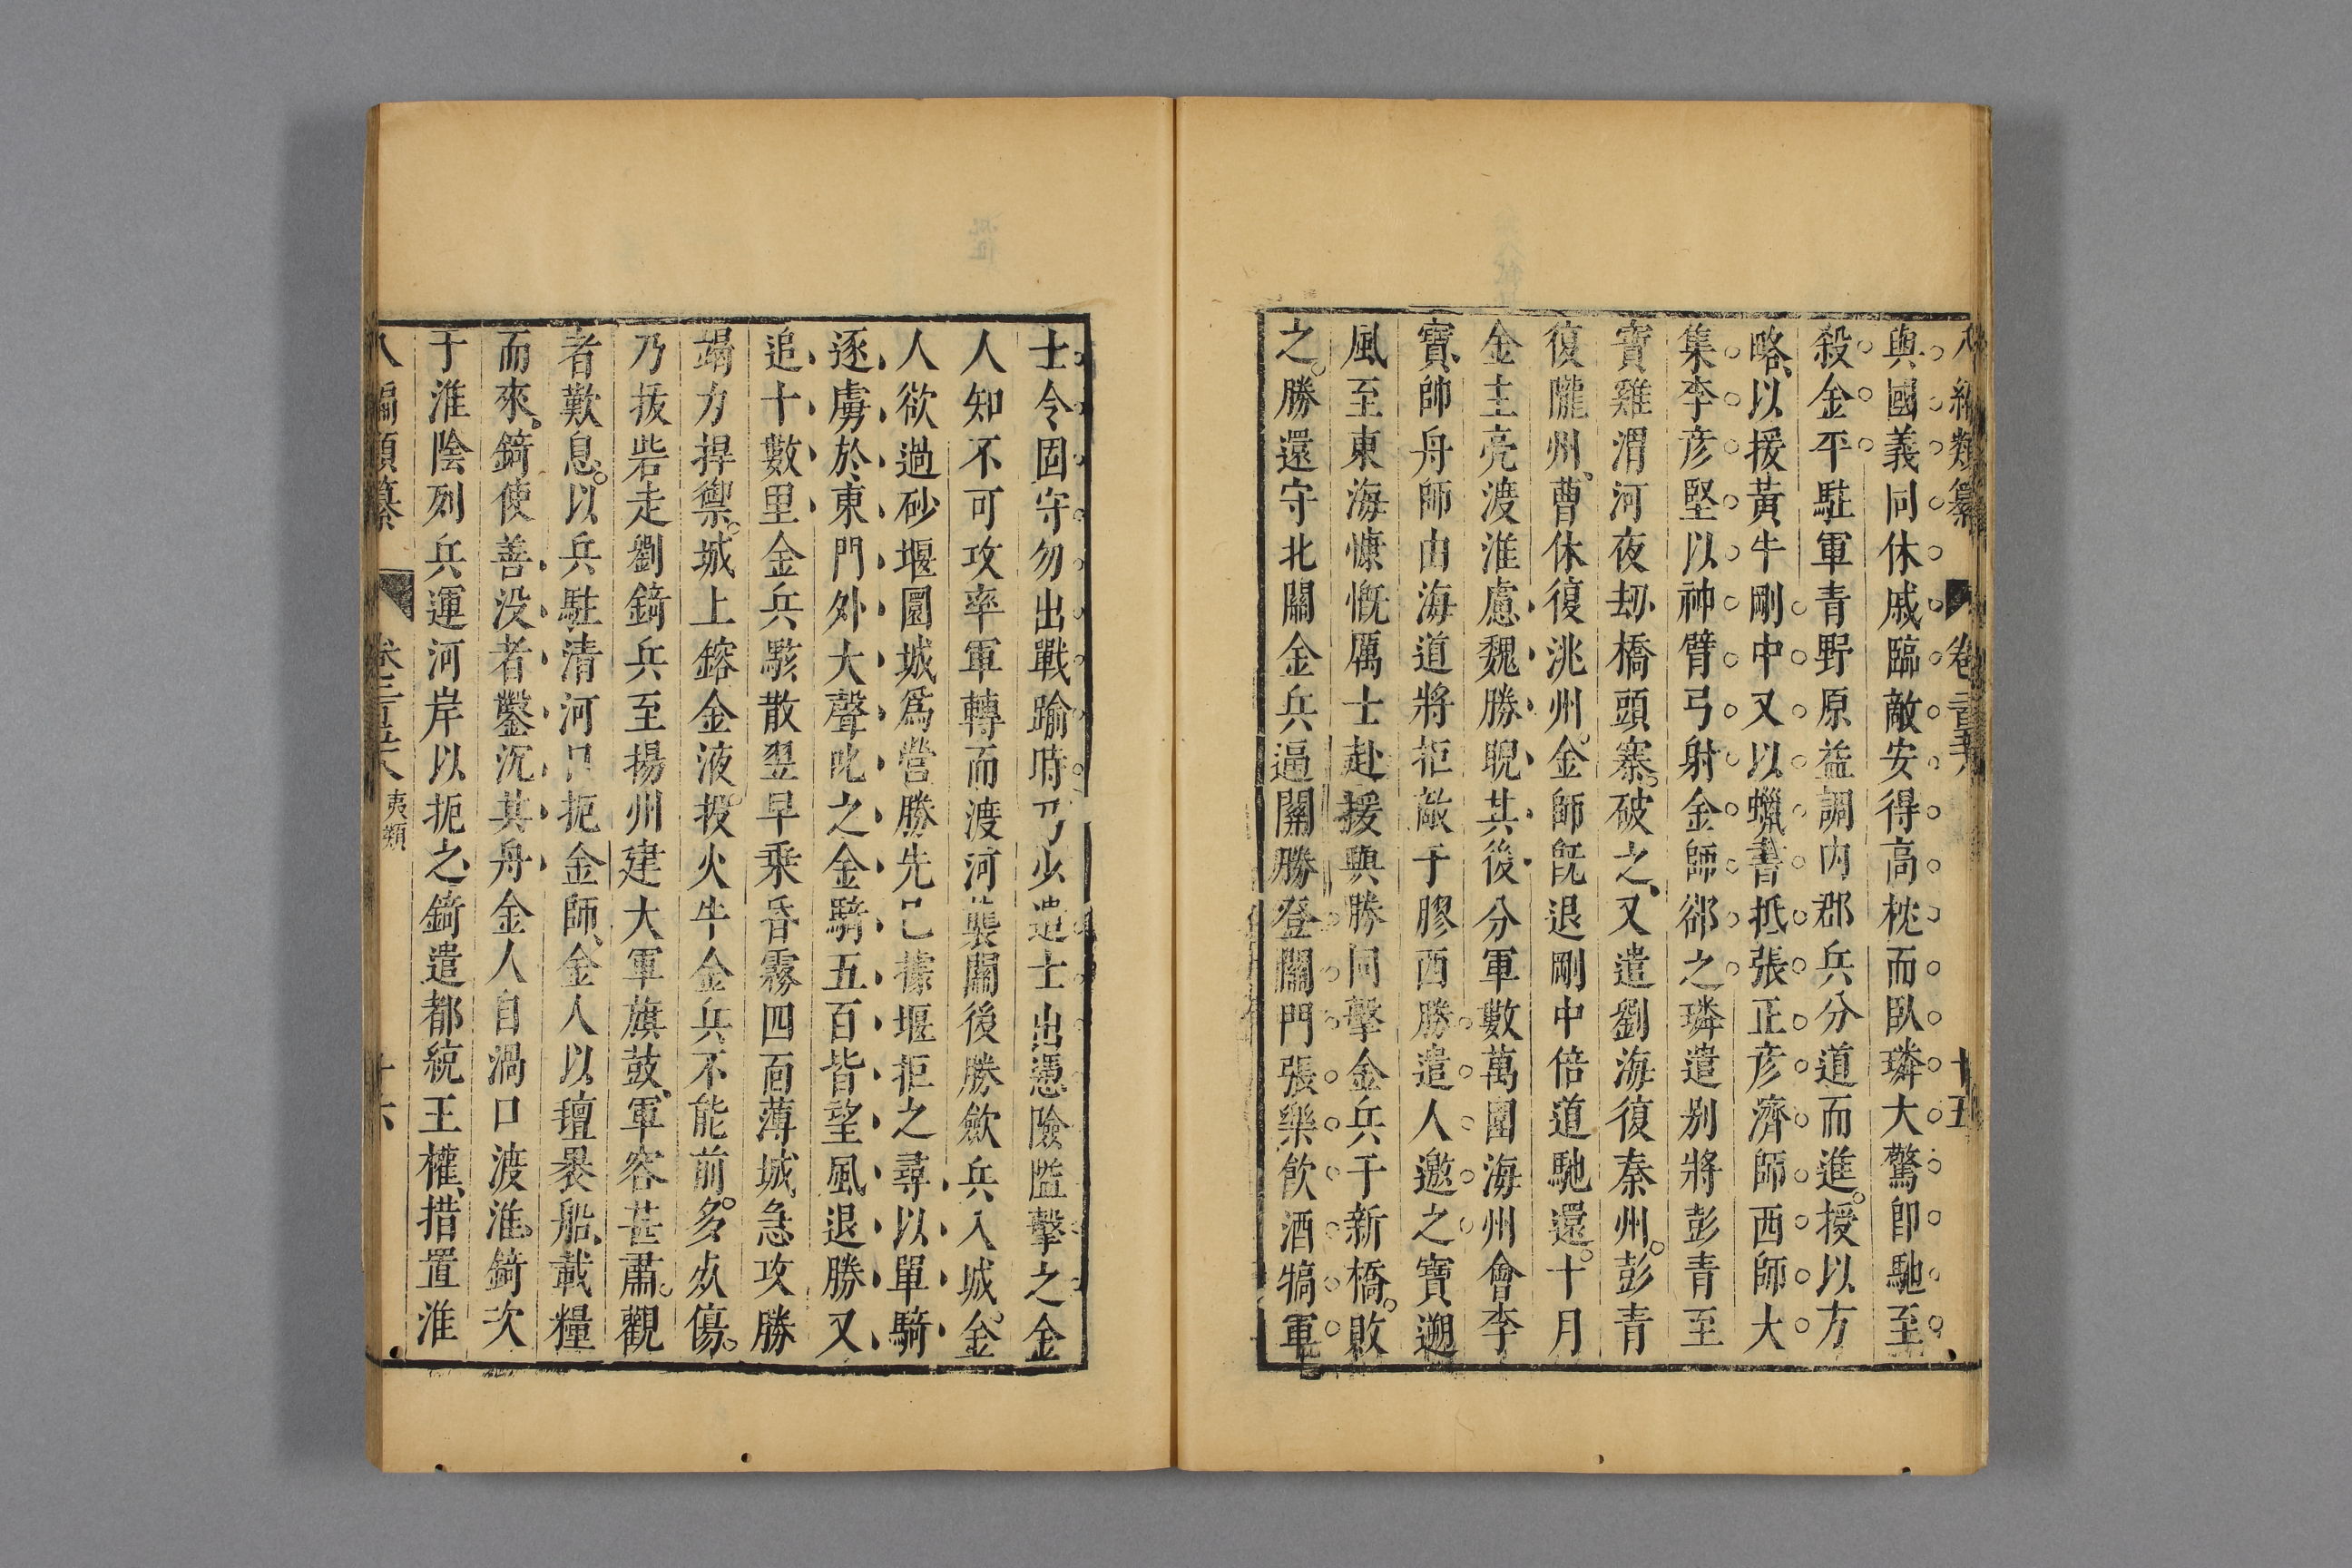 八編類纂 卷二百二十八 十五
與國義同休戚臨敵安得高枕而臥璘大驚卽馳至
殺金平駐軍青野原益調內郡兵分道而進授以方
略以援黃牛剛中又以蠟書抵張正彥濟師西師大
集李彥堅以神臂弓射金師郤之璘遣別將彭青至
寶雞渭河夜刼橋頭寨破之又遣劉海復秦州彭青
復隴州曹休復洮州金師旣退剛中倍道馳還十月
金主亮渡淮慮魏勝睨其後分軍數萬圍海州會李
寶帥舟師由海道將拒敵于膠西勝遣人邀之寶遡
風至東海慷慨厲士赴援與勝同擊金兵于新橋敗
之勝還守北關金兵逼關勝登關門張樂飮酒犒軍
士令固守勿出戰踰時乃少遣士出憑險隘擊之金
人知不可攻率軍轉而渡河襲關後勝歛兵入城金
人欲過砂堰圍城爲營勝先已據堰拒之尋以單騎
逐虜於東門外大聲叱之金騎五百皆望風退勝又
追十數里金兵駭散翌早乘昏霧四面薄城急攻勝
竭力捍禦城上鎔金液投火牛金兵不能前多死傷
乃拔砦走劉錡兵至揚州建大軍旗鼓軍容甚肅觀
者歎息以兵駐清河口扼金師金人以氊褁船載糧
而來錡使善沒者鑿沉其舟金人自渦口渡淮錡次
于淮陰列兵運河岸以扼之錡遣都統王權措置淮
八編類纂 夷類 十六